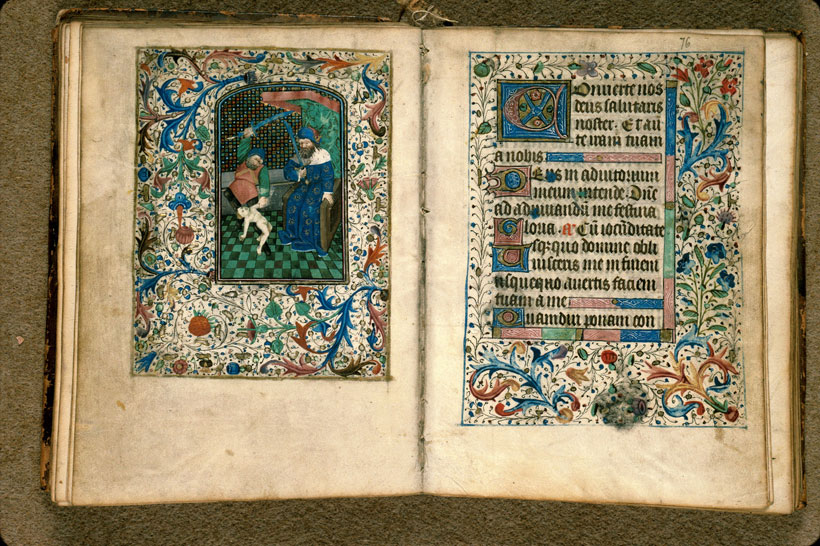 76
Onuerte nos
deus salutaris
noster. Et auer
te iram tuam
a nobis
Eus in adiutorium
meum intende. Dne
ad adiuuandum me festina
loria. Cum iocunditate
sqrquo domine obli
uisceris me in finem
usquequo auertis faciem
tuam a me
uamdiu ponam con